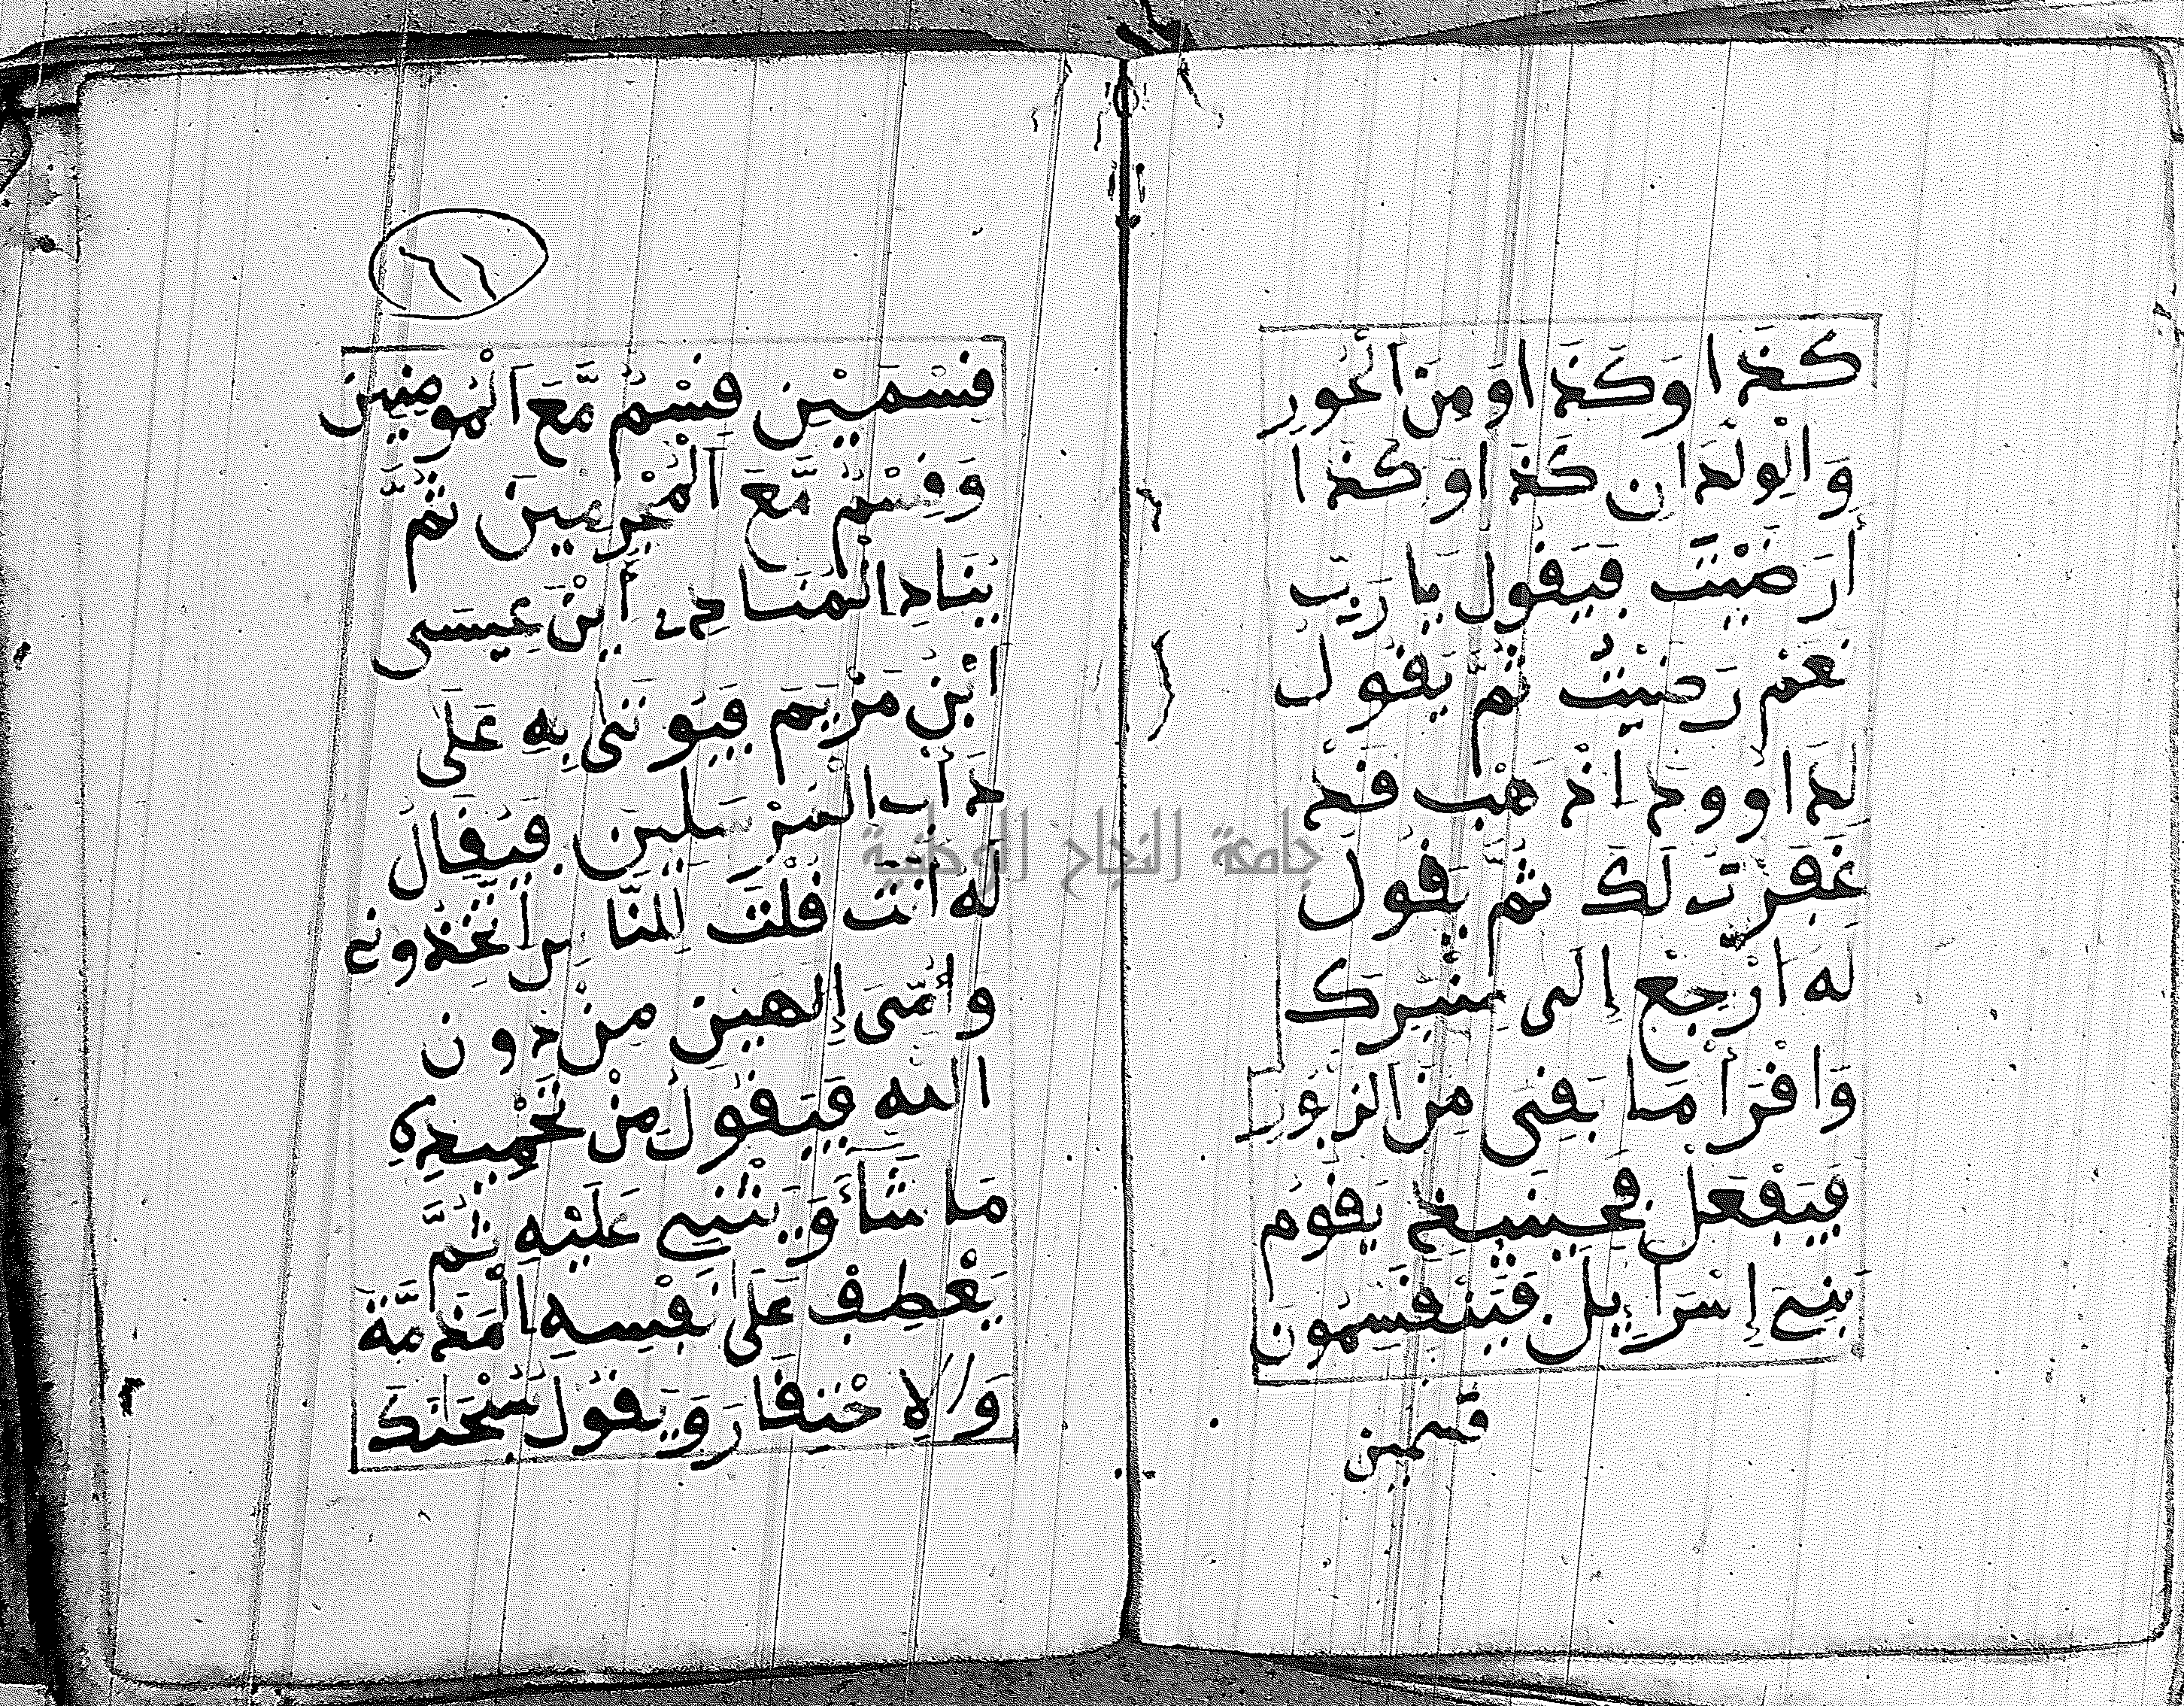 كَذَا وَكَذَا وَمِنَ الْحُورِ
وَالْوِلْدَانِ كَذَا وَكَذَا
أَرَضَيْتَ فَيَقُولُ يَا رَبِّ
نَعَمْ رَضَيْتُ ثُمَّ يَقُولُ
لِدَاوُودَ اذْهَبْ فَقَدْ
غَفَرْتُ لَكَ ثُمَّ يَقُولُ
لَهُ ارْجِعْ إِلَى مِنْبَرِكَ
وَاقْرَأْ مَا بَقِيَ مِنَ الزَّبُورِ
فَيَفْعَلُ فَحِينَئِذٍ يَقُومُ
بَنِي إِسْرَاءِيلَ فَيَنْقَسِمُونَ
قسمين
٦٦
قِسْمَيْنِ قِسْمٌ مَّعَ الْمُومِنِينَ
وَقِسْمٌ مَّعَ الْمُجْرِمِينَ ثُمَّ
يُنَادِ الْمُنَادِي أَيْنَ عِيسَى
ابْنُ مَرْيَمَ فَيُوتَى بِهِ عَلَى
دَأْبِ الْمُرْسَلِينَ فَيُقَالُ
لَهُ أَنْتَ قُلْتَ لِلنَّاسِ اتَّخِذُونِي
وَأُمِّيَ إِلَهَيْنِ مِنْ دُونِ
اللهِ فَيَقُولُ مِنْ تَحْمِيدِهِ
مَا شَاءَ وَيُثْنِي عَلَيْهِ ثُمَّ
يَعْطِفُ عَلَى نَفْسِهِ الْمَذَمَّةَ
وَالِاحْتِقَارَ وَيَقُولُ سُبْحَانَكَ
جامعة النجاح الوطنية